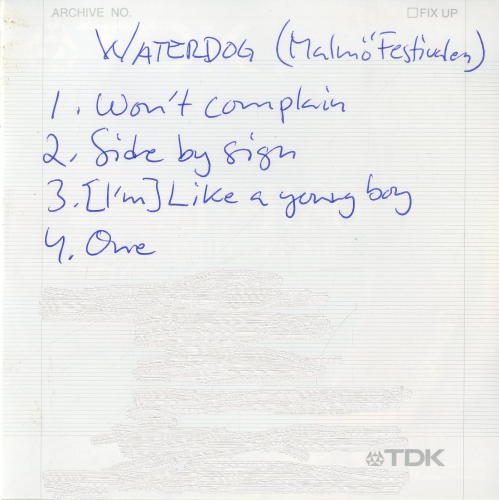 ARCHIVE NO. FIX UP
WATERDOG (Malmö Festivalen)
1. Won't complain
2. Side by sign
3. [I'm] Like a young boy
4. One
TDK